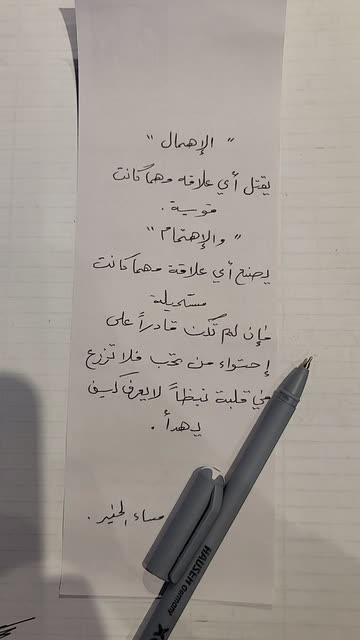 " الإهمال "
يقتل أي علاقه وهما كانت
قوية .
" والإهتمام "
يصنع أي علاقة مهما كانت
مستحيلة
فإن لم تكن قادراً على
إحتواء من تحب فلا تزرع
في قلبة نبظاً لا يعرف كيف
يهدأ .
مساء الخير .
HAUSER Germany